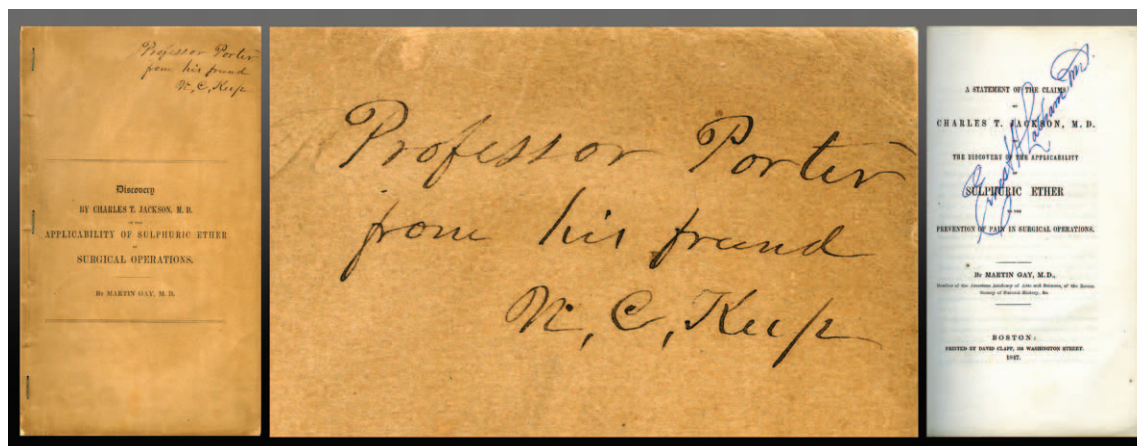 Professor Porter
from his friend
N, C, Keep
Discovery
BY CHARLES T. JACKSON, M. D.
OF THE
APPLICABILITY OF SULPHURIC ETHER
SURGICAL OPERATIONS,
BY MARTIN GAY, M. D.
Professor Porter
from his friend
N, C, Keep
A STATEMENT OF THE CLAIMS
OF
CHARLES T. JACKSON, M.D.
THE DISCOVERY OF THE APPLICABILITY
SULPHURIC ETHER
TO THE
PREVENTION OF PAIN IN SURGICAL OPERATIONS.
BY MARTIN GAY, M.D.,
Member of the American Academy of Arts and Sciences, of the Boston
Society of Natural History, &c.
BOSTON:
PRINTED BY DAVID CLAPP, WASHINGTON STREET.
1847.
Ernest Latham M.D.